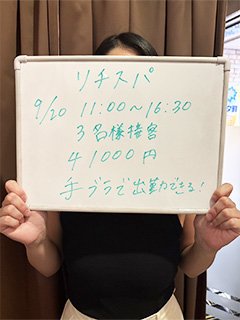 リチスパ
9/20 11:00~16:30
3名様接客
41000円
手ブラで出勤できる!